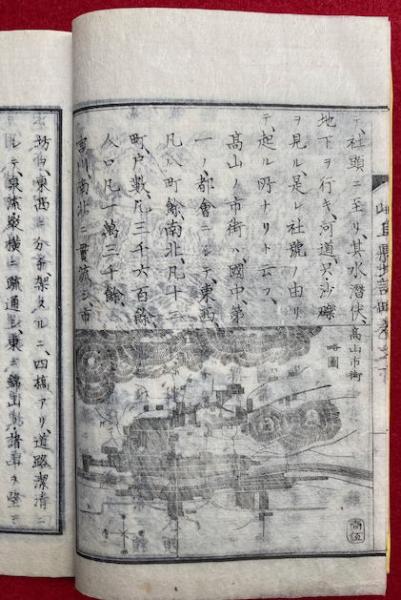 岐阜縣地誌略卷之下
テ、社頭ニ至リ、其水潜伏、
地下ヲ行キ、河道、只沙礫
ヲ見ル、是レ社號ノ由リ
テ起ル所ナリト云フ、
高山ノ市街ハ、國中、第
一ノ都會ニシテ、東西、
凡八町餘、南北、凡十三
町、戸數、凡三千六百餘、
人口凡一萬三千餘、
宮川南北ニ貫流シ、市
高山市街
略圖
坊ヲ、東西ニ分チ、架スルニ、四橋アリ、道路潔清ニ
シテ、泉流縱橫ニ疏通シ、東ニ錦山
諸
ヲ